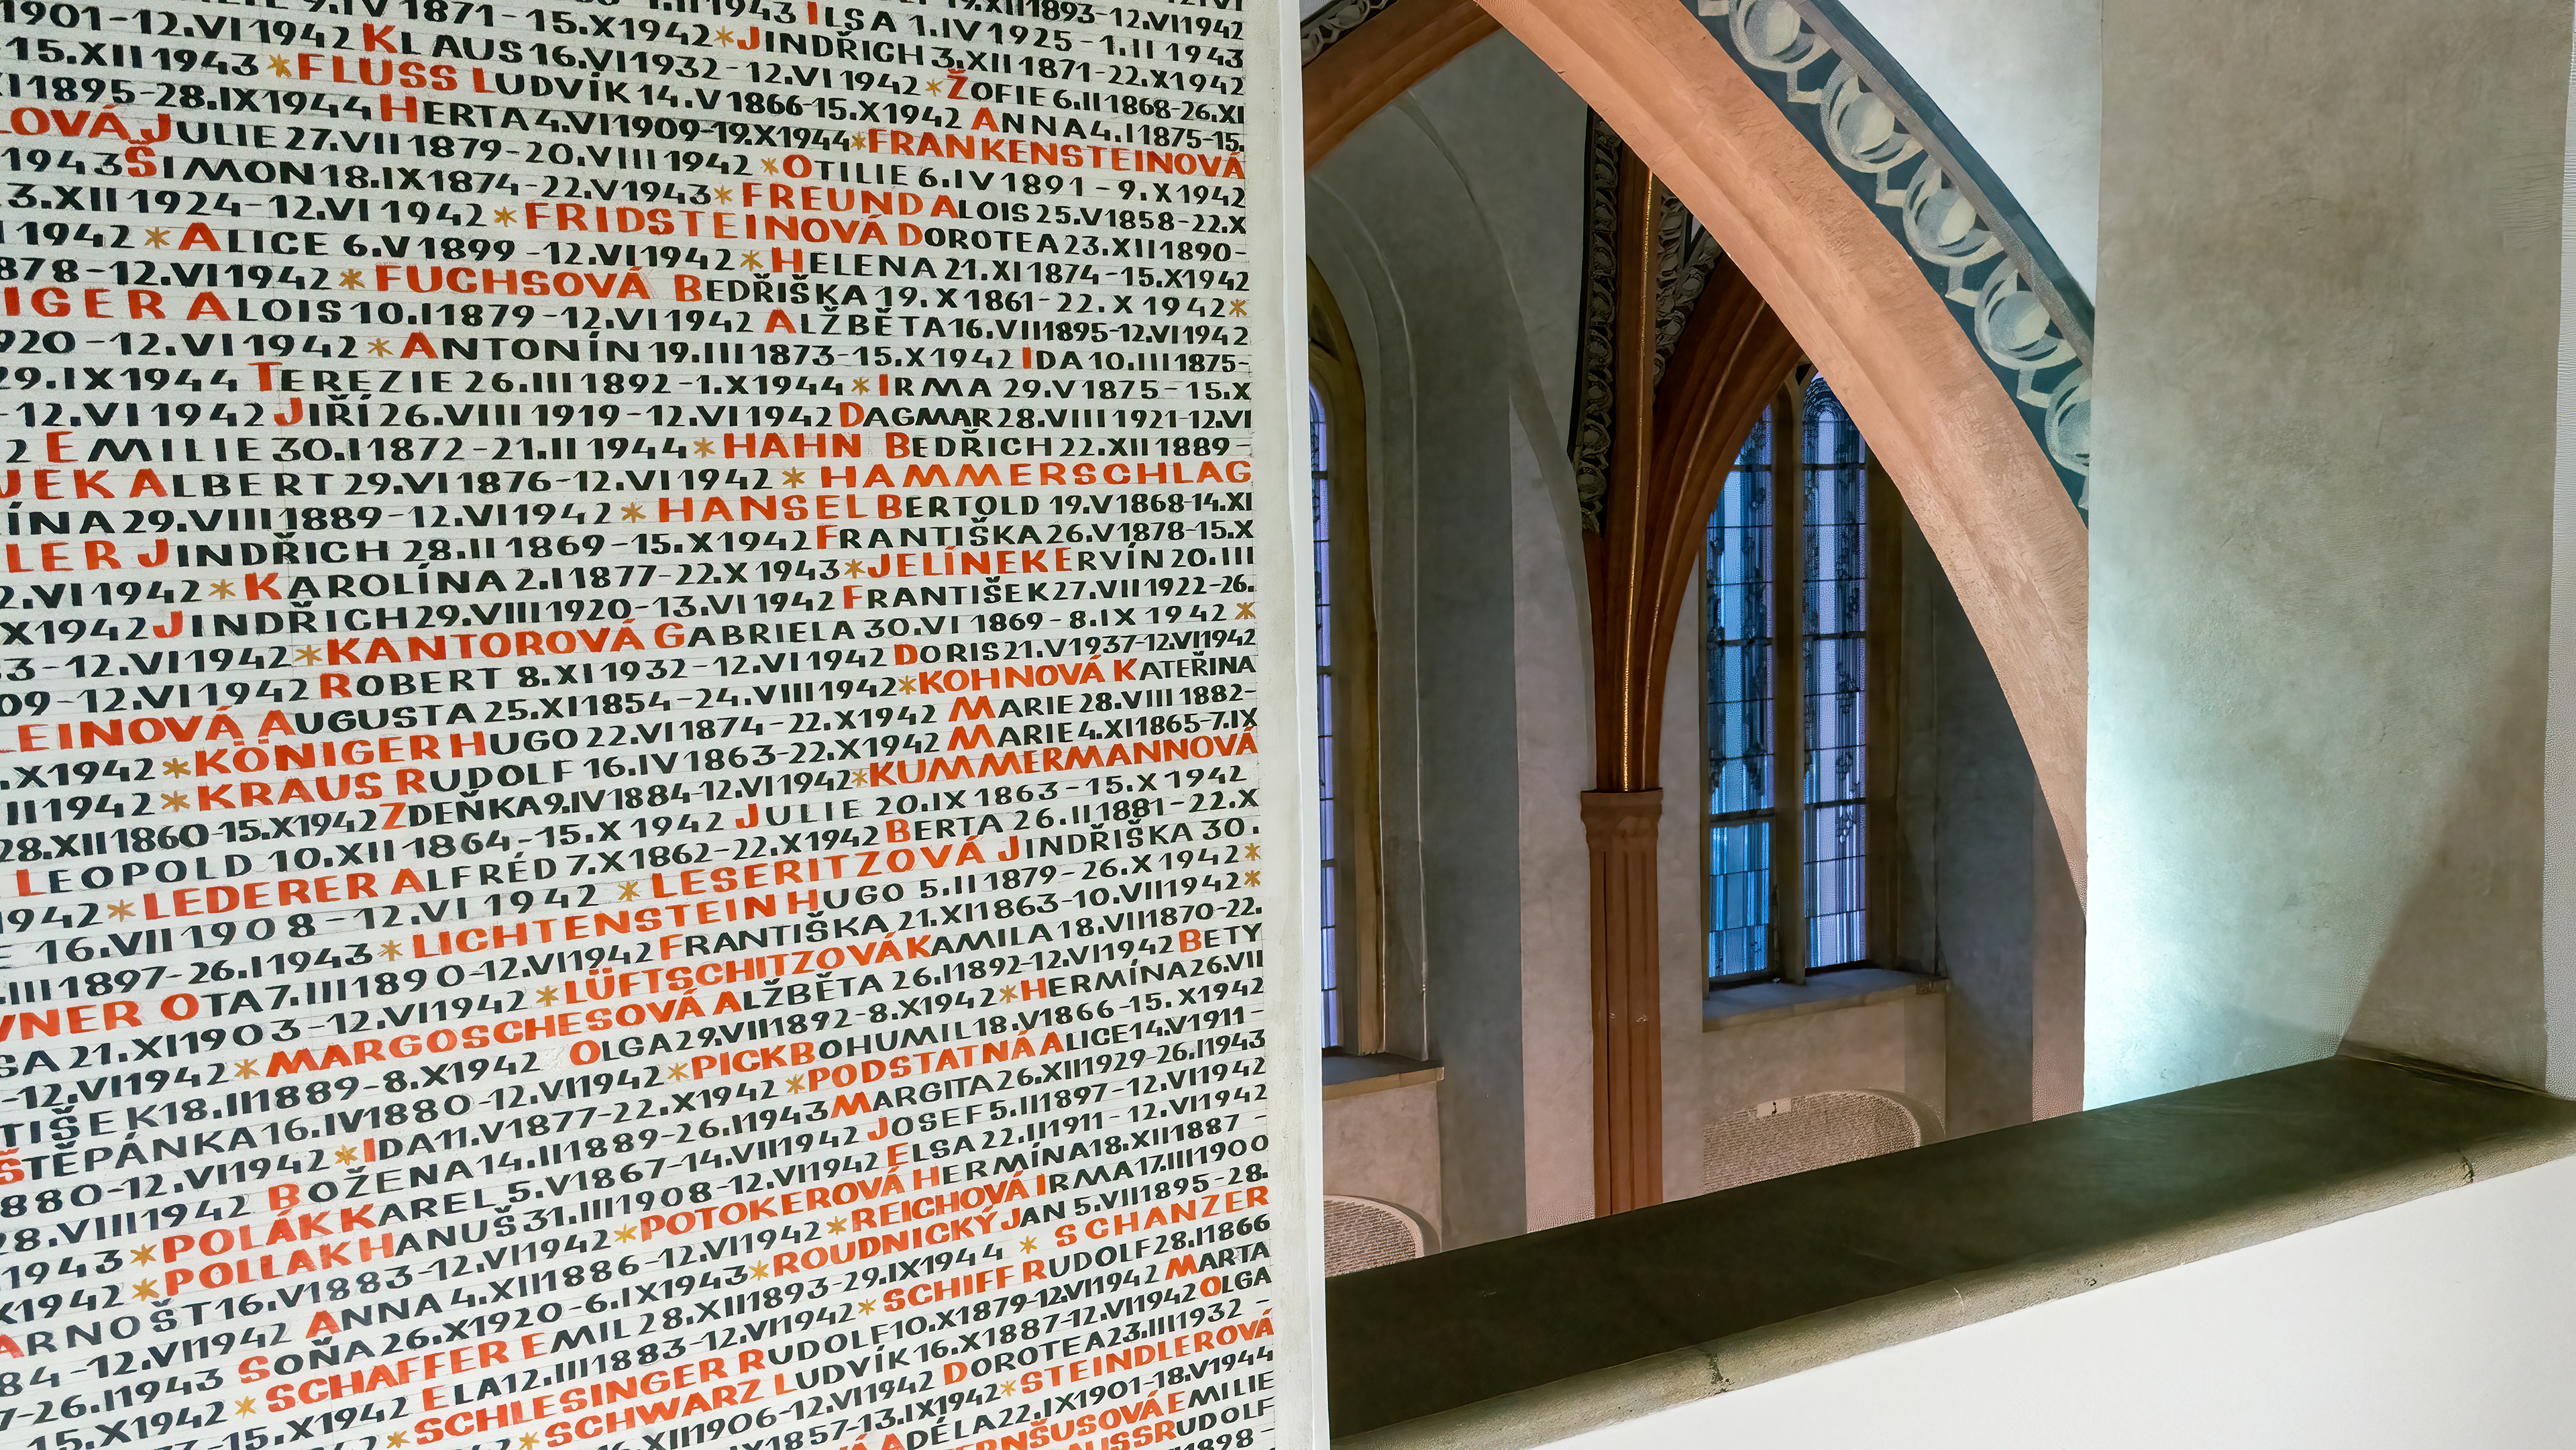 1901-12.VI1942 KLAUS 16.VI1932-12.VI1942 *ŽOFIE 6.II1868-26.XI
15.XII1943 *FLUSS LUDVÍK 14.V1866-15.X1942 ANNA 4.I1875-15.
I1895-28.IX1944 HERTA 4.VI1909-19.X1944 *FRANKENSTEINOVÁ
LOVÁ JULIE 27.VII1879-20.VIII1942 *OTILIE 6.IV1891-9.X1942
1943 ŠIMON 18.IX1874-22.V1943 *FREUND ALOIS 25.V1858-22.X
3.XII1924-12.VI1942 *FRIDSTEINOVÁ DOROTEA 23.XII1890-
1942 *ALICE 6.V1899-12.VI1942 *HELENA 21.XI1874-15.X1942
878-12.VI1942 *FUCHSOVÁ BEDŘIŠKA 19.X1861-22.X1942*
IGER ALOIS 10.I1879-12.VI1942 ALŽBĚTA 16.VII1895-12.VI1942
920-12.VI1942 *ANTONÍN 19.III1873-15.X1942 IDA 10.III1875-
29.IX1944 TEREZIE 26.III1892-1.X1944 *IRMA 29.V1875-15.X
-12.VI1942 JIŘÍ 26.VIII1919-12.VI1942 DAGMAR 28.VIII1921-12.VI
2 EMILIE 30.I1872-21.II1944 *HAHN BEDŘICH 22.XII1889-
JEK ALBERT 29.VI1876-12.VI1942 *HAMMERSCHLAG
ÍNA 29.VIII1889-12.VI1942 *HANSEL BERTOLD 19.V1868-14.XI
LER JINDŘICH 28.II1869-15.X1942 FRANTIŠKA 26.V1878-15.X
2.VI1942 *KAROLÍNA 2.I1877-22.X1943 *JELÍNEK ERVÍN 20.III
X1942 JINDŘICH 29.VIII1920-13.VI1942 FRANTIŠEK 27.VII1922-26.
3-12.VI1942 *KANTOROVÁ GABRIELA 30.VI1869-8.IX1942*
09-12.VI1942 ROBERT 8.XI1932-12.VI1942 DORIS 21.V1937-12.VI1942
LEINOVÁ AUGUSTA 25.XI1854-24.VIII1942 *KOHNOVÁ KATEŘINA
.X1942 *KÖNIGER HUGO 22.VI1874-22.X1942 MARIE 28.VIII1882-
II1942 *KRAUS RUDOLF 16.IV1863-22.X1942 MARIE 4.XI1865-7.IX
28.XII1860-15.X1942 ZDEŇKA 9.IV1884-12.VI1942 *KUMMERMANNOVÁ
LEOPOLD 10.XII1864-15.X1942 JULIE 20.IX1863-15.X1942
1942 *LEDERER ALFRÉD 7.X1862-22.X1942 BERTA 26.II1881-22.X
16.VII1908-12.VI1942 *LESERITZOVÁ JINDŘIŠKA 30.
.III1897-26.I1943 *LICHTENSTEIN HUGO 5.II1879-26.X1942*
VNER OTA 7.III1890-12.VI1942 FRANTIŠKA 21.XI1863-10.VII1942*
SA 21.XI1903-12.VI1942 *LÜFTSCHITZOVÁ KAMILA 18.VII1870-22.
-12.VI1942 *MARGOSCHESOVÁ ALŽBĚTA 26.I1892-12.VI1942 BETY
TIŠEK 18.III1889-8.X1942 OLGA 29.VII1892-8.X1942 *HERMÍNA 26.VII
ŠTĚPÁNKA 16.IV1880-12.VI1942 *PICK BOHUMIL 18.V1866-15.X1942
880-12.VI1942 *IDA 11.V1877-22.X1942 *PODSTATNÁ ALICE 14.V1911-
28.VIII1942 BOŽENA 14.II1889-26.I1943 MARGITA 26.XII1929-26.I1943
1943 *POLÁK KAREL 5.V1867-14.VII1942 JOSEF 5.III1897-12.VI1942
X1942 *POLLAK HANUŠ 31.III1908-12.VI1942 ELSA 22.II1911-12.VI1942
ARNOŠT 16.V1883-12.VI1942 *POTOKEROVÁ HERMÍNA 18.XII1887-
84-12.VI1942 ANNA 4.XII1886-12.VI1942 *REICHOVÁ IRMA 17.III1900
7-26.I1943 SOŇA 26.X1920-6.IX1943 *ROUDNICKÝ JAN 5.VII1895-28.
15.X1942 *SCHAFFER EMIL 28.XII1893-29.IX1944 *SCHANZER
-15.X1942 ELA 12.III1883-12.VI1942 *SCHIFF RUDOLF 28.I1866
*SCHLESINGER RUDOLF 10.X1879-12.VI1942 MARTA
*SCHWARZ LUDVÍK 16.X1887-12.VI1942 OLGA
XII1906-12.VI1942 DOROTEA 23.III1932-
1857-13.IX1942 *STEINDLEROVÁ
ADÉLA 22.IX1901-18.V1944
EMILIE
RUDOLF
1898-